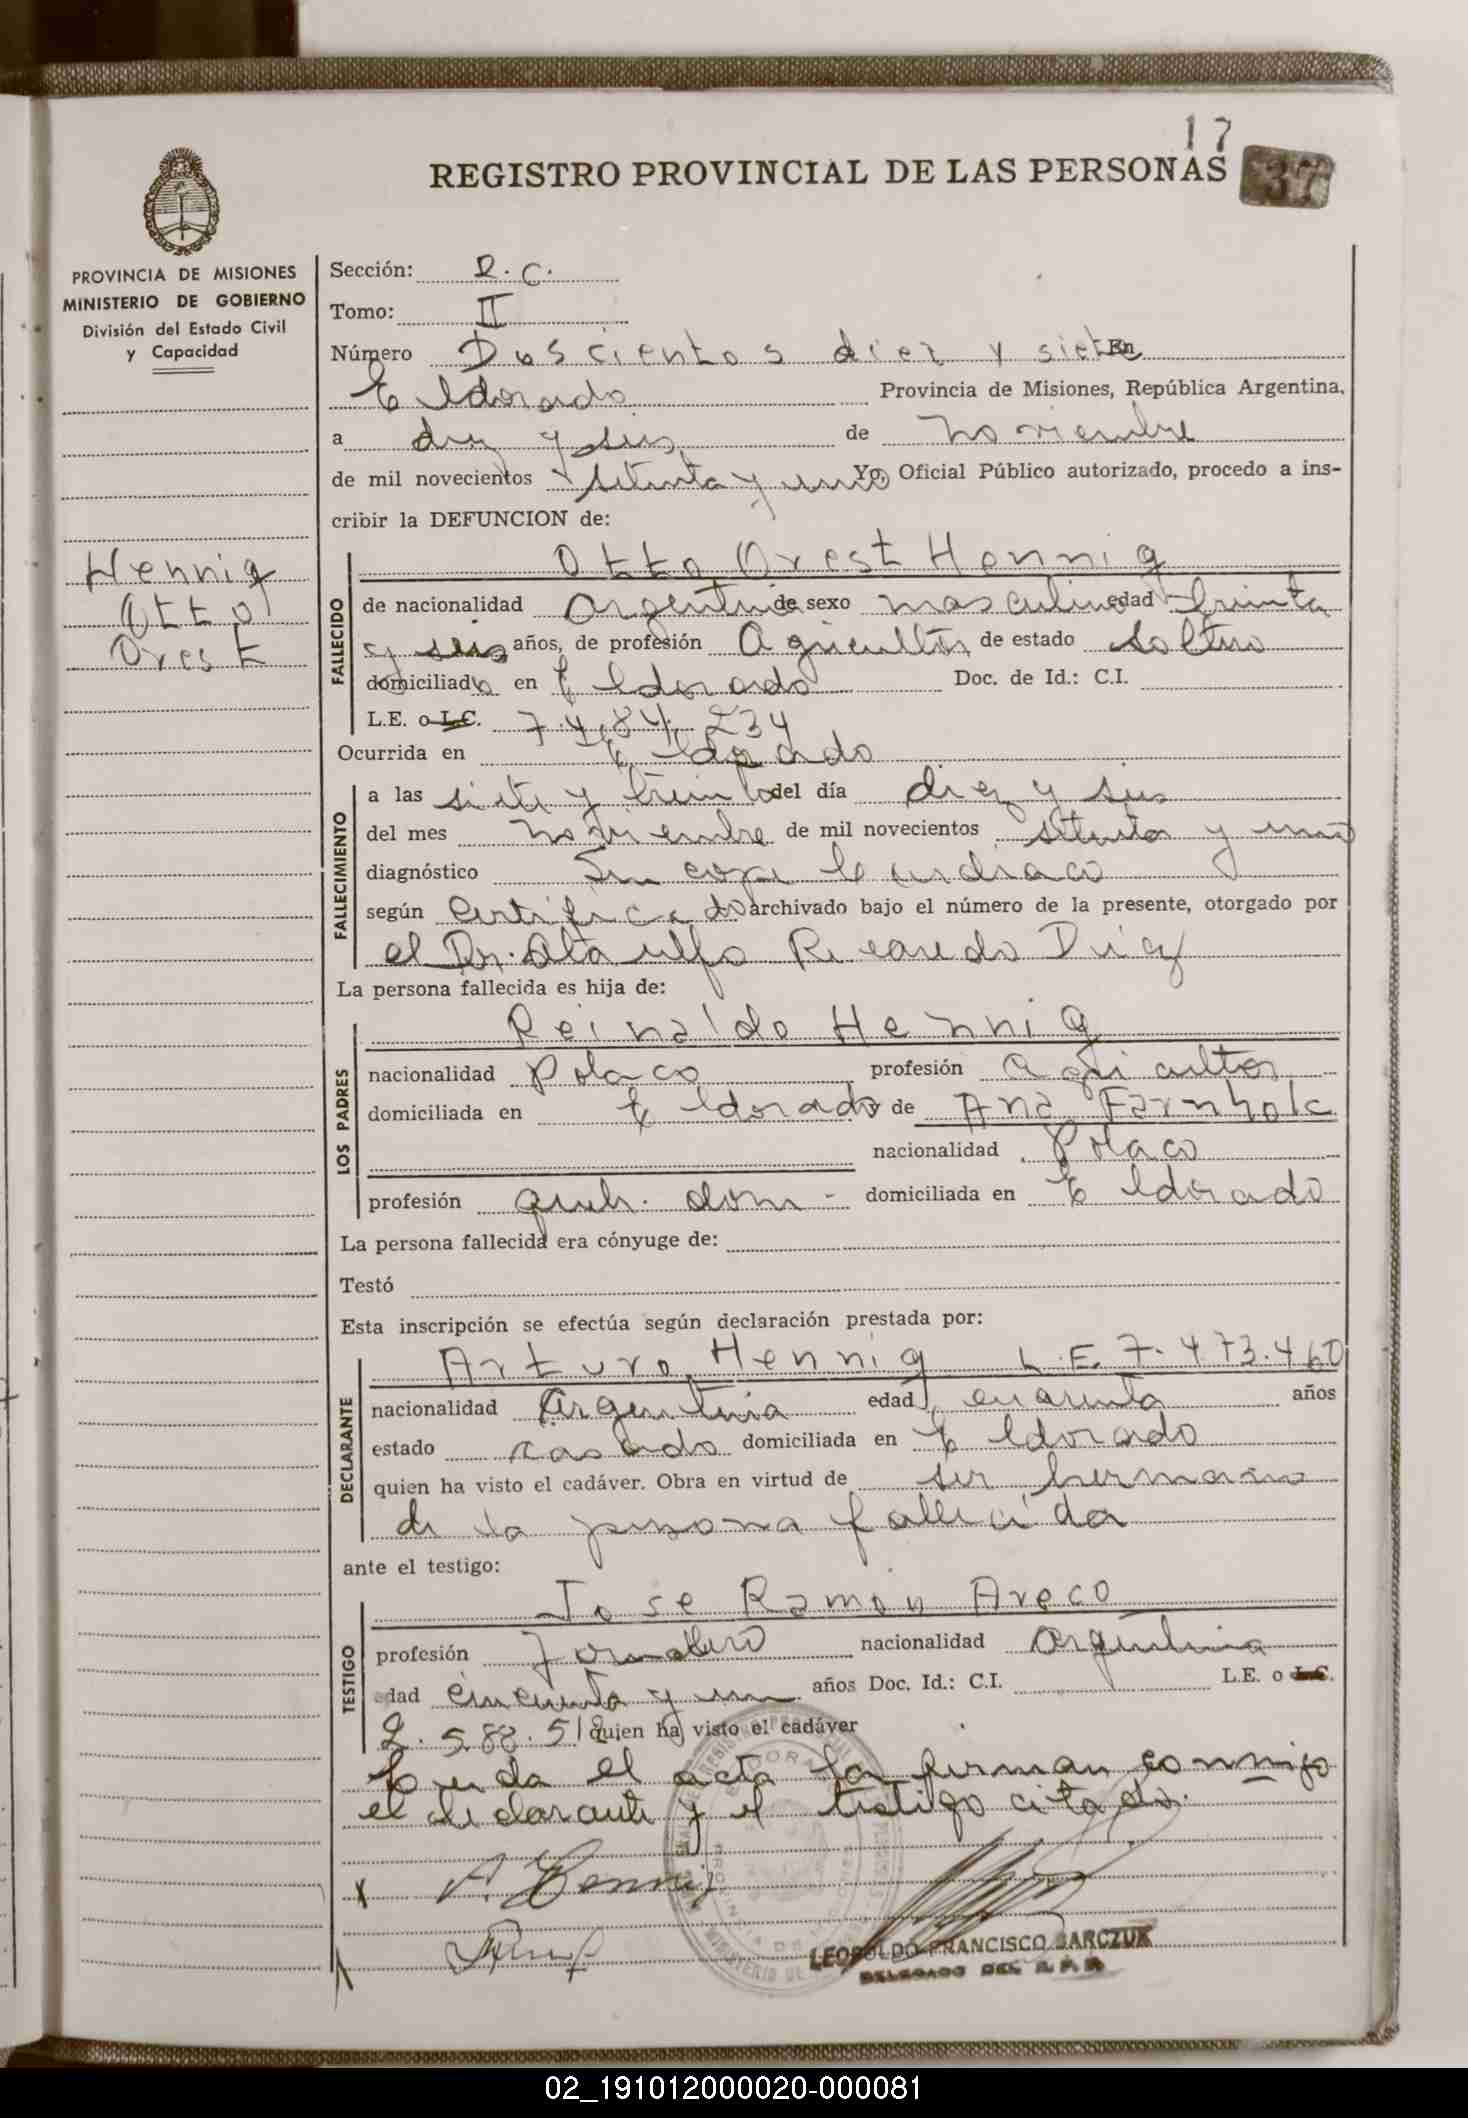 17
REGISTRO PROVINCIAL DE LAS PERSONAS 37
PROVINCIA DE MISIONES
MINISTERIO DE GOBIERNO
División del Estado Civil
y Capacidad
Hennig
Otto
Orest
Sección: R.C.
Tomo: II
Número Doscientos diez y siete En
Eldorado Provincia de Misiones, República Argentina,
a diez y seis de noviembre
de mil novecientos setenta y uno Yo, Oficial Público autorizado, procedo a ins-
cribir la DEFUNCION de:
FALLECIDO
Otto Orest Hennig
de nacionalidad Argentina de sexo masculino edad treinta
y seis años, de profesión Agricultor de estado soltero
domiciliado en Eldorado Doc. de Id.: C.I.
L.E. o L.C. 7.484.234
Ocurrida en Eldorado
FALLECIMIENTO
a las siete y treinta del día diez y seis
del mes noviembre de mil novecientos setenta y uno
diagnóstico Sincope Cardiaco
según certificado archivado bajo el número de la presente, otorgado por
el Dr. Ataulfo Ricardo Diez
La persona fallecida es hija de:
LOS PADRES
Reinaldo Hennig
nacionalidad Polaco profesión agricultor
domiciliada en Eldorado y de Ana Farnholc
nacionalidad Polaco
profesión queh. dom - domiciliada en Eldorado
La persona fallecida era cónyuge de:
Testó
Esta inscripción se efectúa según declaración prestada por:
DECLARANTE
Arturo Hennig L.E. 7.473.460
nacionalidad Argentina edad cuarenta años
estado casado domiciliada en Eldorado
quien ha visto el cadáver. Obra en virtud de ser hermano
de la persona fallecida
ante el testigo:
TESTIGO
Jose Ramón Areco
profesión Jornalero nacionalidad argentina
edad cincuenta y un años Doc. Id.: C.I. L.E. o L.C.
2.588.518 quien ha visto el cadáver
Leida el acta la firman conmigo
el declarante y el testigo citado.
A. Hennig
LEOPOLDO FRANCISCO SARCZUK
DELEGADO DEL R.P.P.
02_191012000020-000081